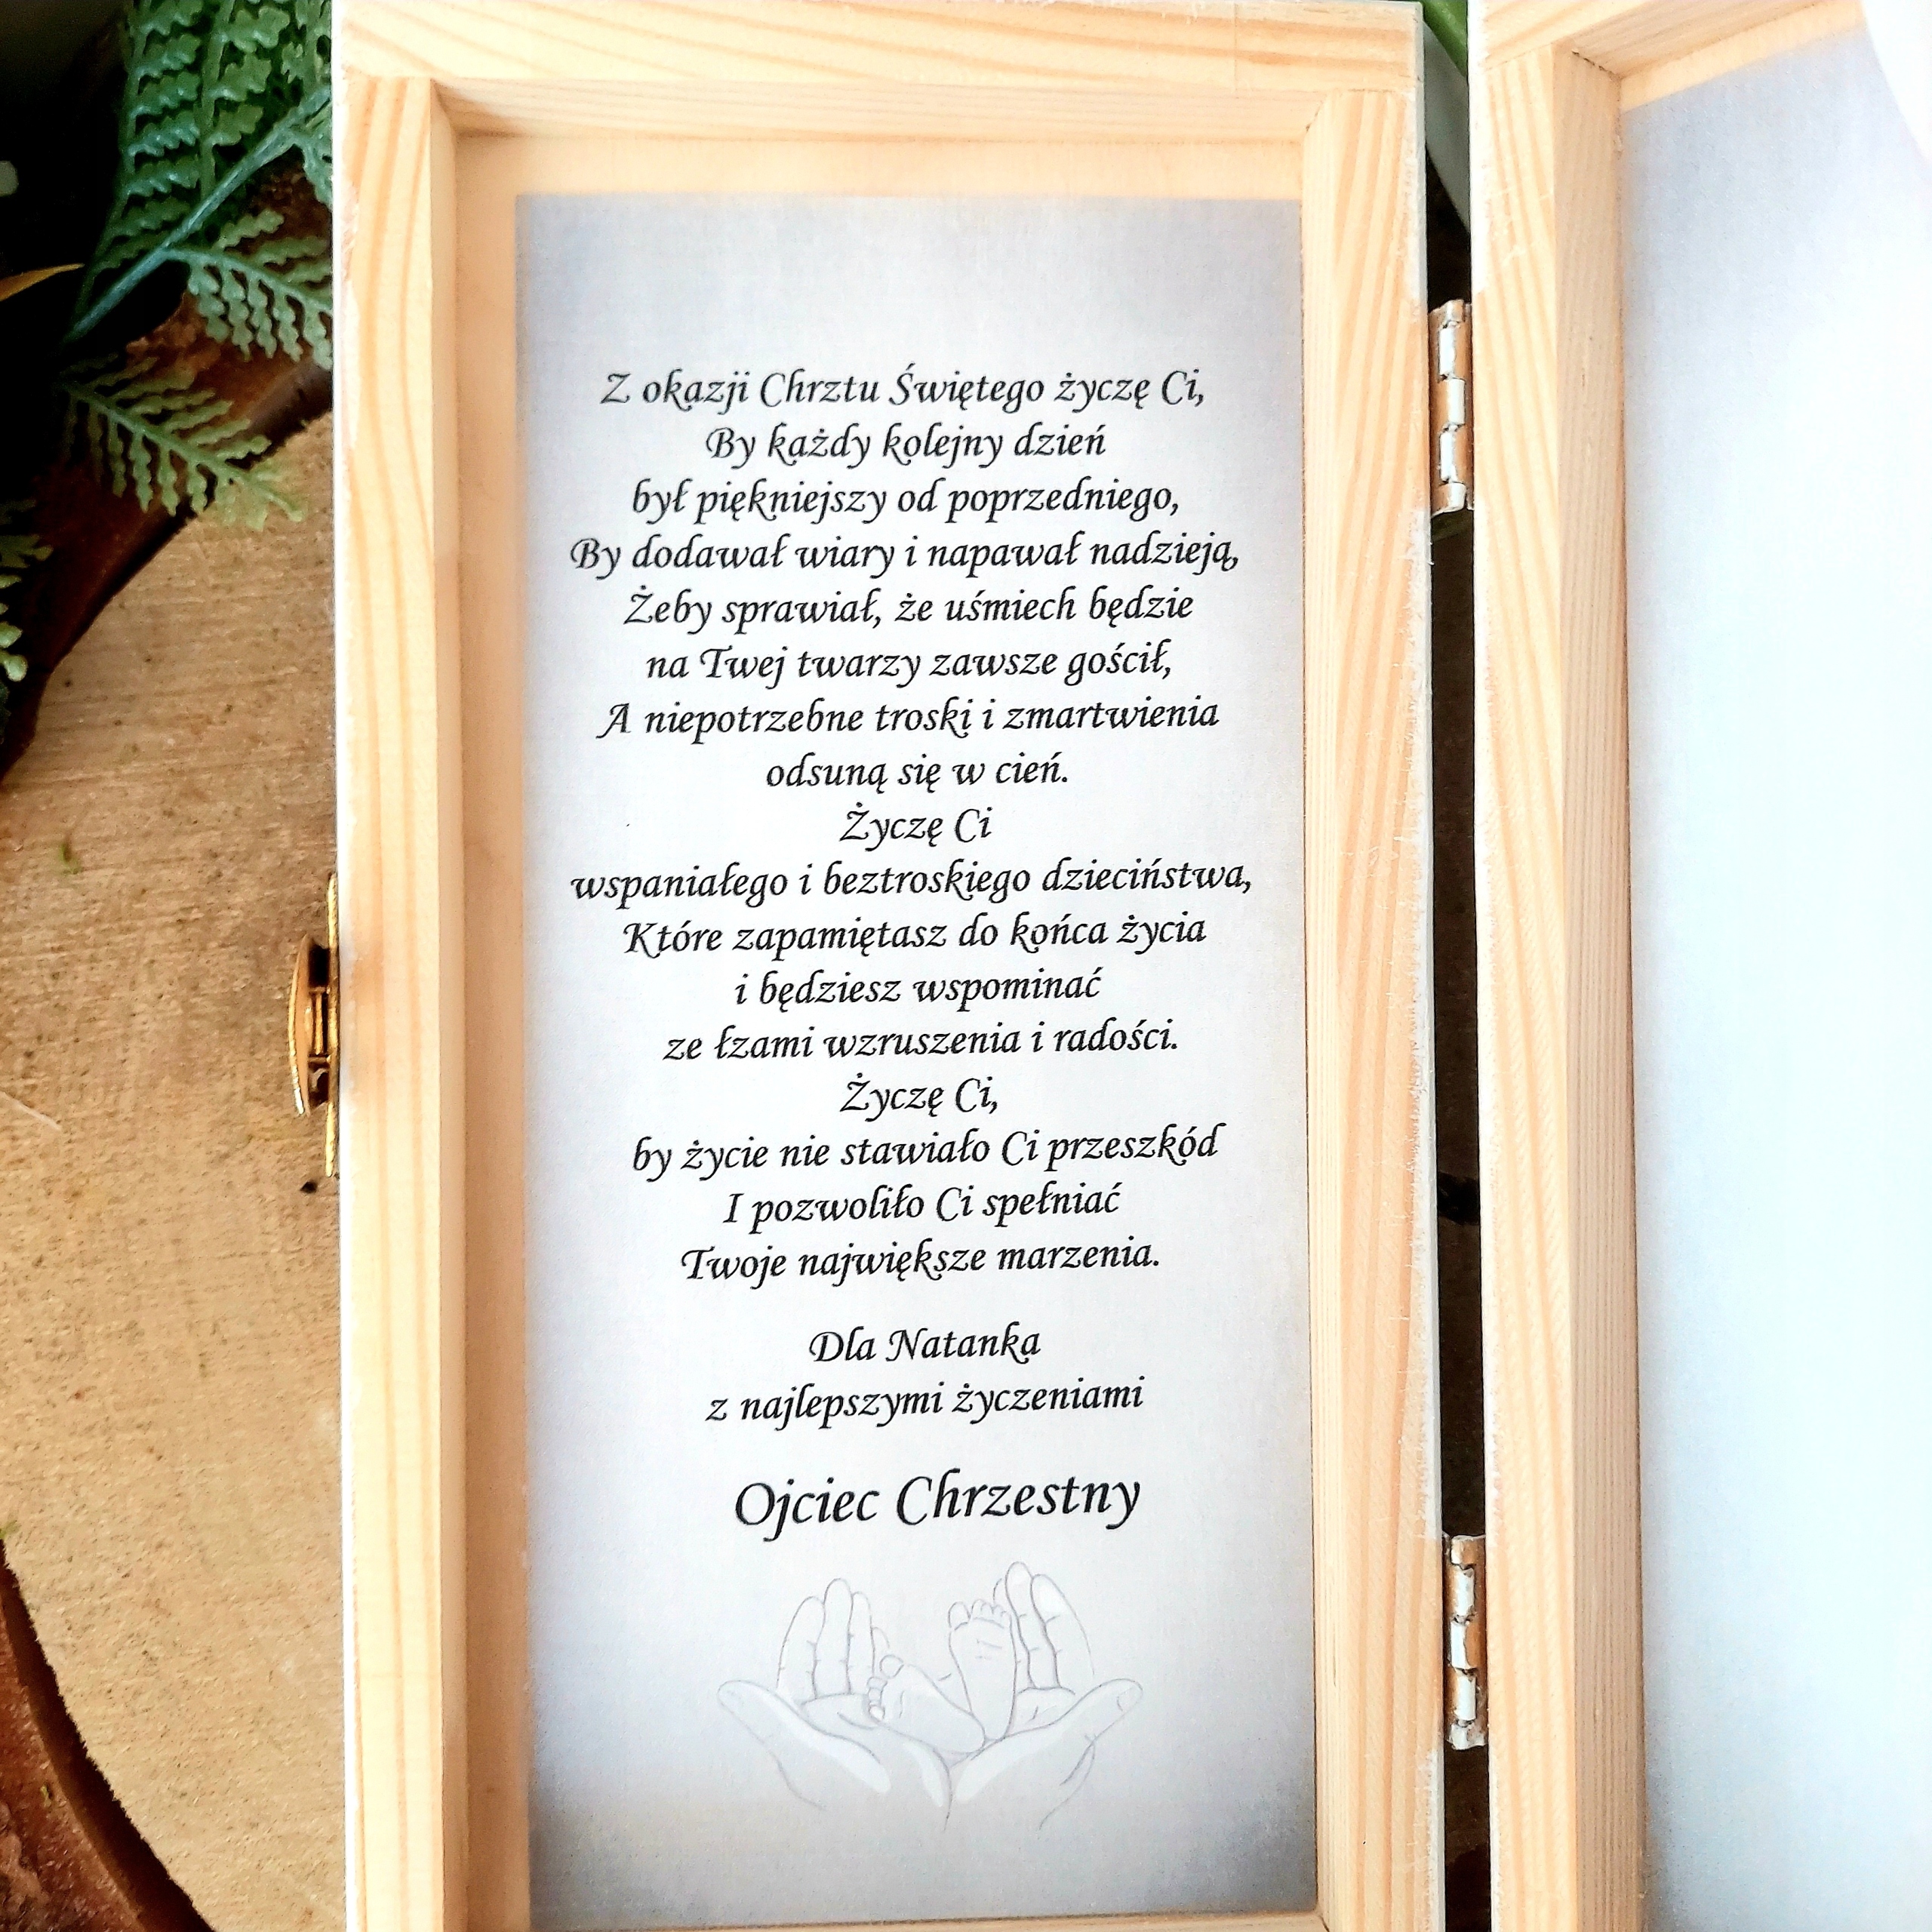 Z okazji Chrztu Świętego życzę Ci,
By każdy kolejny dzień
był piękniejszy od poprzedniego,
By dodawał wiary i napawał nadzieją,
Żeby sprawiał, że uśmiech będzie
na Twej twarzy zawsze gościł,
A niepotrzebne troski i zmartwienia
odsuną się w cień.
Życzę Ci
wspaniałego i beztroskiego dzieciństwa,
Które zapamiętasz do końca życia
i będziesz wspominać
ze łzami wzruszenia i radości.
Życzę Ci,
by życie nie stawiało Ci przeszkód
I pozwoliło Ci spełniać
Twoje największe marzenia.
Dla Natanka
z najlepszymi życzeniami
Ojciec Chrzestny